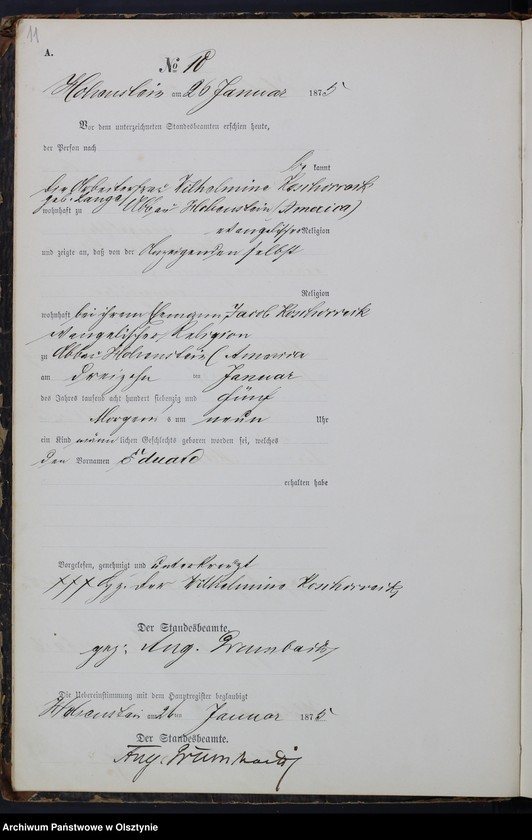 11
A.
No 10
Hohenstein am 26 Januar 1875
Vor dem unterzeichneten Standesbeamten erschien heute,
der Person nach
be kannt
die Arbeiterfrau Wilhelmine Koschorreck
geb. Lange
wohnhaft zu Abbau Hohenstein (America)
evangelischer Religion
und zeigte an, daß von der Anzeigenden selbst
Religion
wohnhaft bei ihrem Ehemann Jacob Koschorreck
evangelischer Religion
zu Abbau Hohenstein (America
am dreizehn ten Januar
des Jahres tausend acht hundert siebenzig und fünf
Morgens um neun Uhr
ein Kind männlichen Geschlechts geboren worden sei, welches
den Vornamen Eduard
erhalten habe
Vorgelesen, genehmigt und unterkreuzt
+++ Hz. der Wilhelmine Koschorreck
Der Standesbeamte.
gez. Aug. Grumbach
Die Uebereinstimmung mit dem Hauptregister beglaubigt
Hohenstein am 26ten Januar 1875
Der Standesbeamte.
Aug. Grumbach
Archiwum Państwowe w Olsztynie